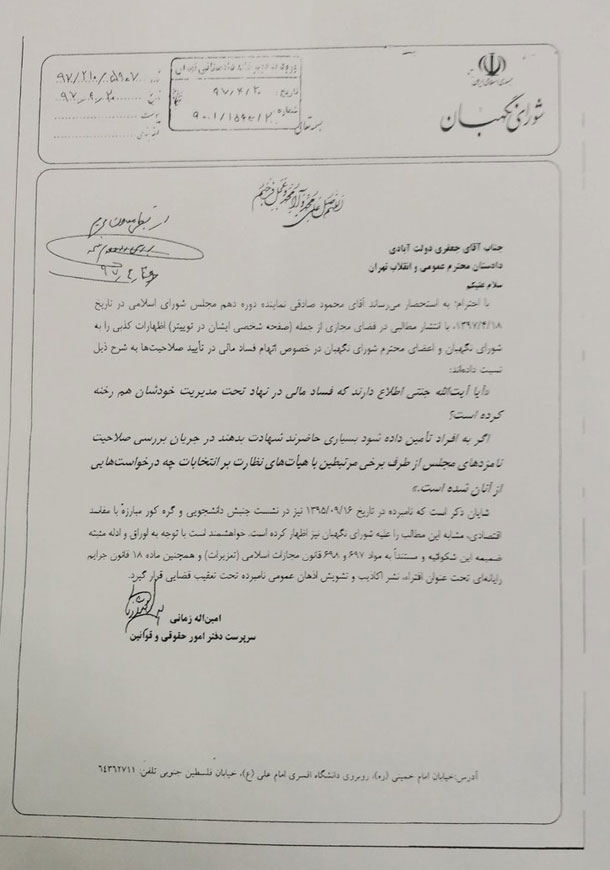 جمهوری اسلامی ایران
شورای نگهبان
بسمه تعالی
تاریخ: ۹۷/۴/۲۰
شماره: ۹۰۰۱/
۹۷/۲۱۰/۵۹۰۷
تاریخ
پیوست
اللهم صل علی محمد و آل محمد و عجل فرجهم
جناب آقای جعفری دولت آبادی
دادستان محترم عمومی و انقلاب تهران
سلام علیکم
با احترام؛ به استحضار می‌رساند آقای محمود صادقی نماینده دوره دهم مجلس شورای اسلامی در تاریخ
۱۳۹۷/۴/۱۸، با انتشار مطالبی در فضای مجازی از جمله (صفحه شخصی ایشان در توییتر) اظهارات کذبی را به
شورای نگهبان و اعضای محترم شورای نگهبان در خصوص اتهام فساد مالی در تأیید صلاحیت‌ها به شرح ذیل
نسبت داده‌اند:
«آیا آیت‌الله جنتی اطلاع دارند که فساد مالی در نهاد تحت مدیریت خودشان هم رخنه
کرده است؟
اگر به افراد تأمین داده شود بسیاری حاضرند شهادت بدهند در جریان بررسی صلاحیت
نامزدهای مجلس از طرف برخی مرتبطین با هیأت‌های نظارت بر انتخابات چه درخواست‌هایی
از آنان شده است.»
شایان ذکر است که نامبرده در تاریخ ۱۳۹۵/۰۹/۱۶ نیز در نشست جنبش دانشجویی و گره کور مبارزه با مفاسد
اقتصادی، مشابه این مطالب را علیه شورای نگهبان نیز اظهار کرده است. خواهشمند است با توجه به اوراق و ادله مثبته
ضمیمه این شکوائیه و مستنداً به مواد ۶۹۷ و ۶۹۸ قانون مجازات اسلامی (تعزیرات) و همچنین ماده ۱۸ قانون جرایم
رایانه‌ای تحت عنوان افتراء، نشر اکاذیب و تشویش اذهان عمومی نامبرده تحت تعقیب قضایی قرار گیرد.
امین‌اله زمانی
سرپرست دفتر امور حقوقی و قوانین
آدرس: خیابان امام خمینی (ره)، روبروی دانشگاه افسری امام علی (ع)، خیابان فلسطین جنوبی تلفن: ۶۴۳۶۲۷۱۱